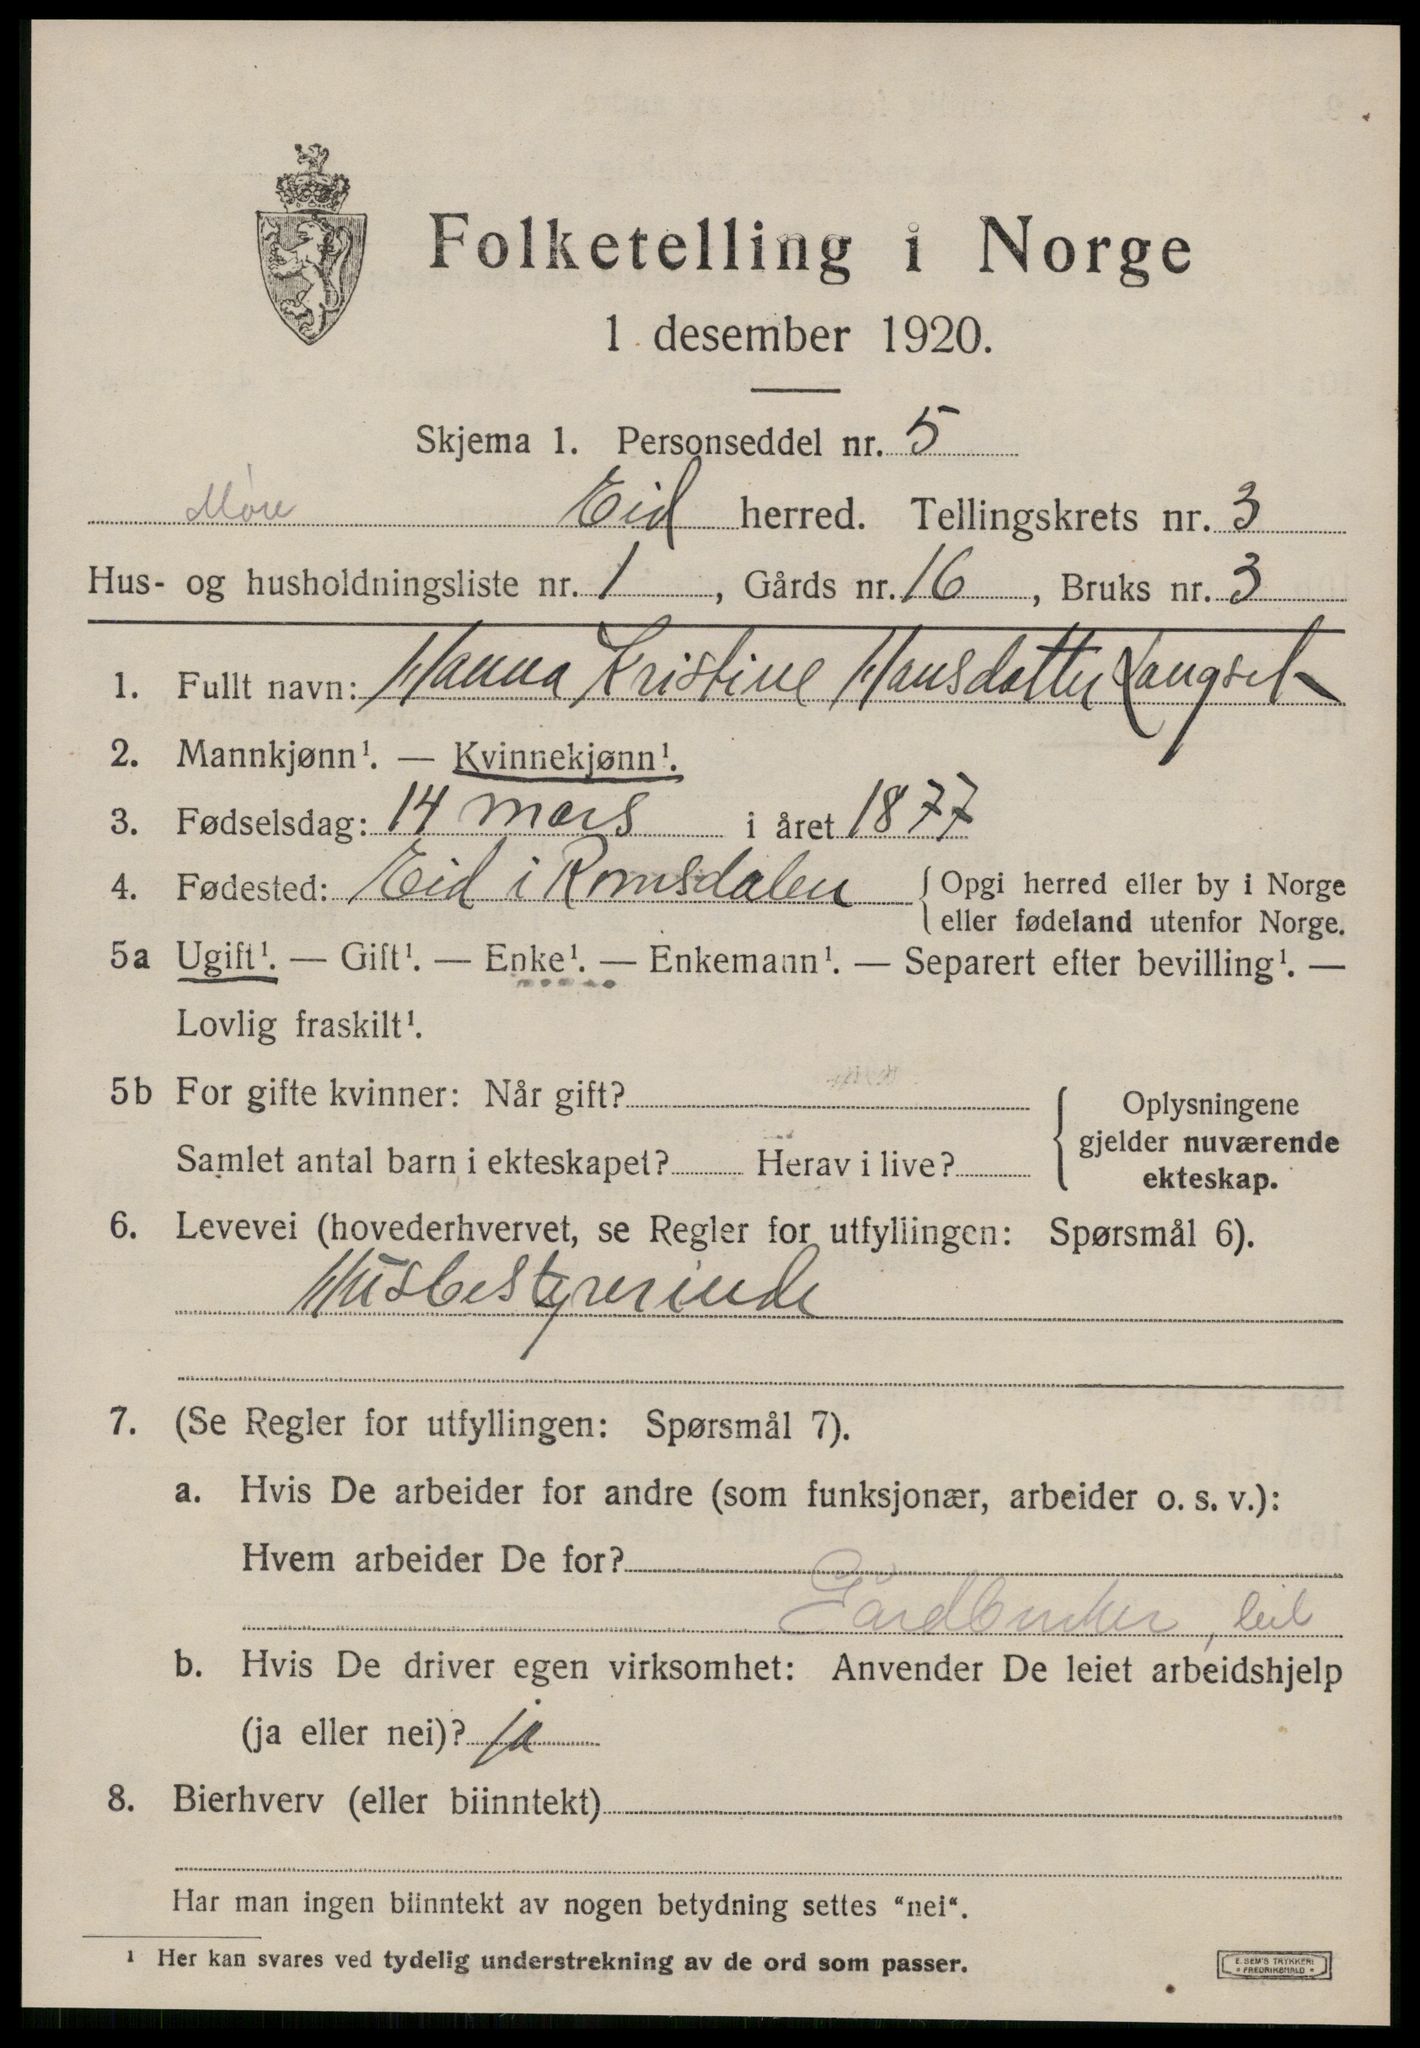 Folketelling i Norge
1 desember 1920.
Skjema 1. Personseddel nr. 5
Møre Eid herred. Tellingskrets nr. 3
Hus- og husholdningsliste nr. 1, Gårds nr. 16, Bruks nr. 3
1. Fullt navn: Hanna Kristine Hansdatter Langset
2. Mannkjønn¹. — Kvinnekjønn¹.
3. Fødselsdag: 14 mars i året 1877
4. Fødested: Eid i Romsdalen { Opgi herred eller by i Norge
eller fødeland utenfor Norge.
5a Ugift¹. — Gift¹. — Enke¹. — Enkemann¹. — Separert efter bevilling¹. —
Lovlig fraskilt¹.
5b For gifte kvinner: Når gift?
Samlet antal barn i ekteskapet? Herav i live?
{ Oplysningene
gjelder nuværende
ekteskap.
6. Levevei (hovederhvervet, se Regler for utfyllingen: Spørsmål 6).
Husbestyrerinde
7. (Se Regler for utfyllingen: Spørsmål 7).
a. Hvis De arbeider for andre (som funksjonær, arbeider o. s. v.):
Hvem arbeider De for?
Gårdbruker,
b. Hvis De driver egen virksomhet: Anvender De leiet arbeidshjelp
(ja eller nei)? ja
8. Bierhverv (eller biinntekt)
Har man ingen biinntekt av nogen betydning settes "nei".
¹ Her kan svares ved tydelig understrekning av de ord som passer.
E. SEM'S TRYKKERI
* FREDRIKSHALD *